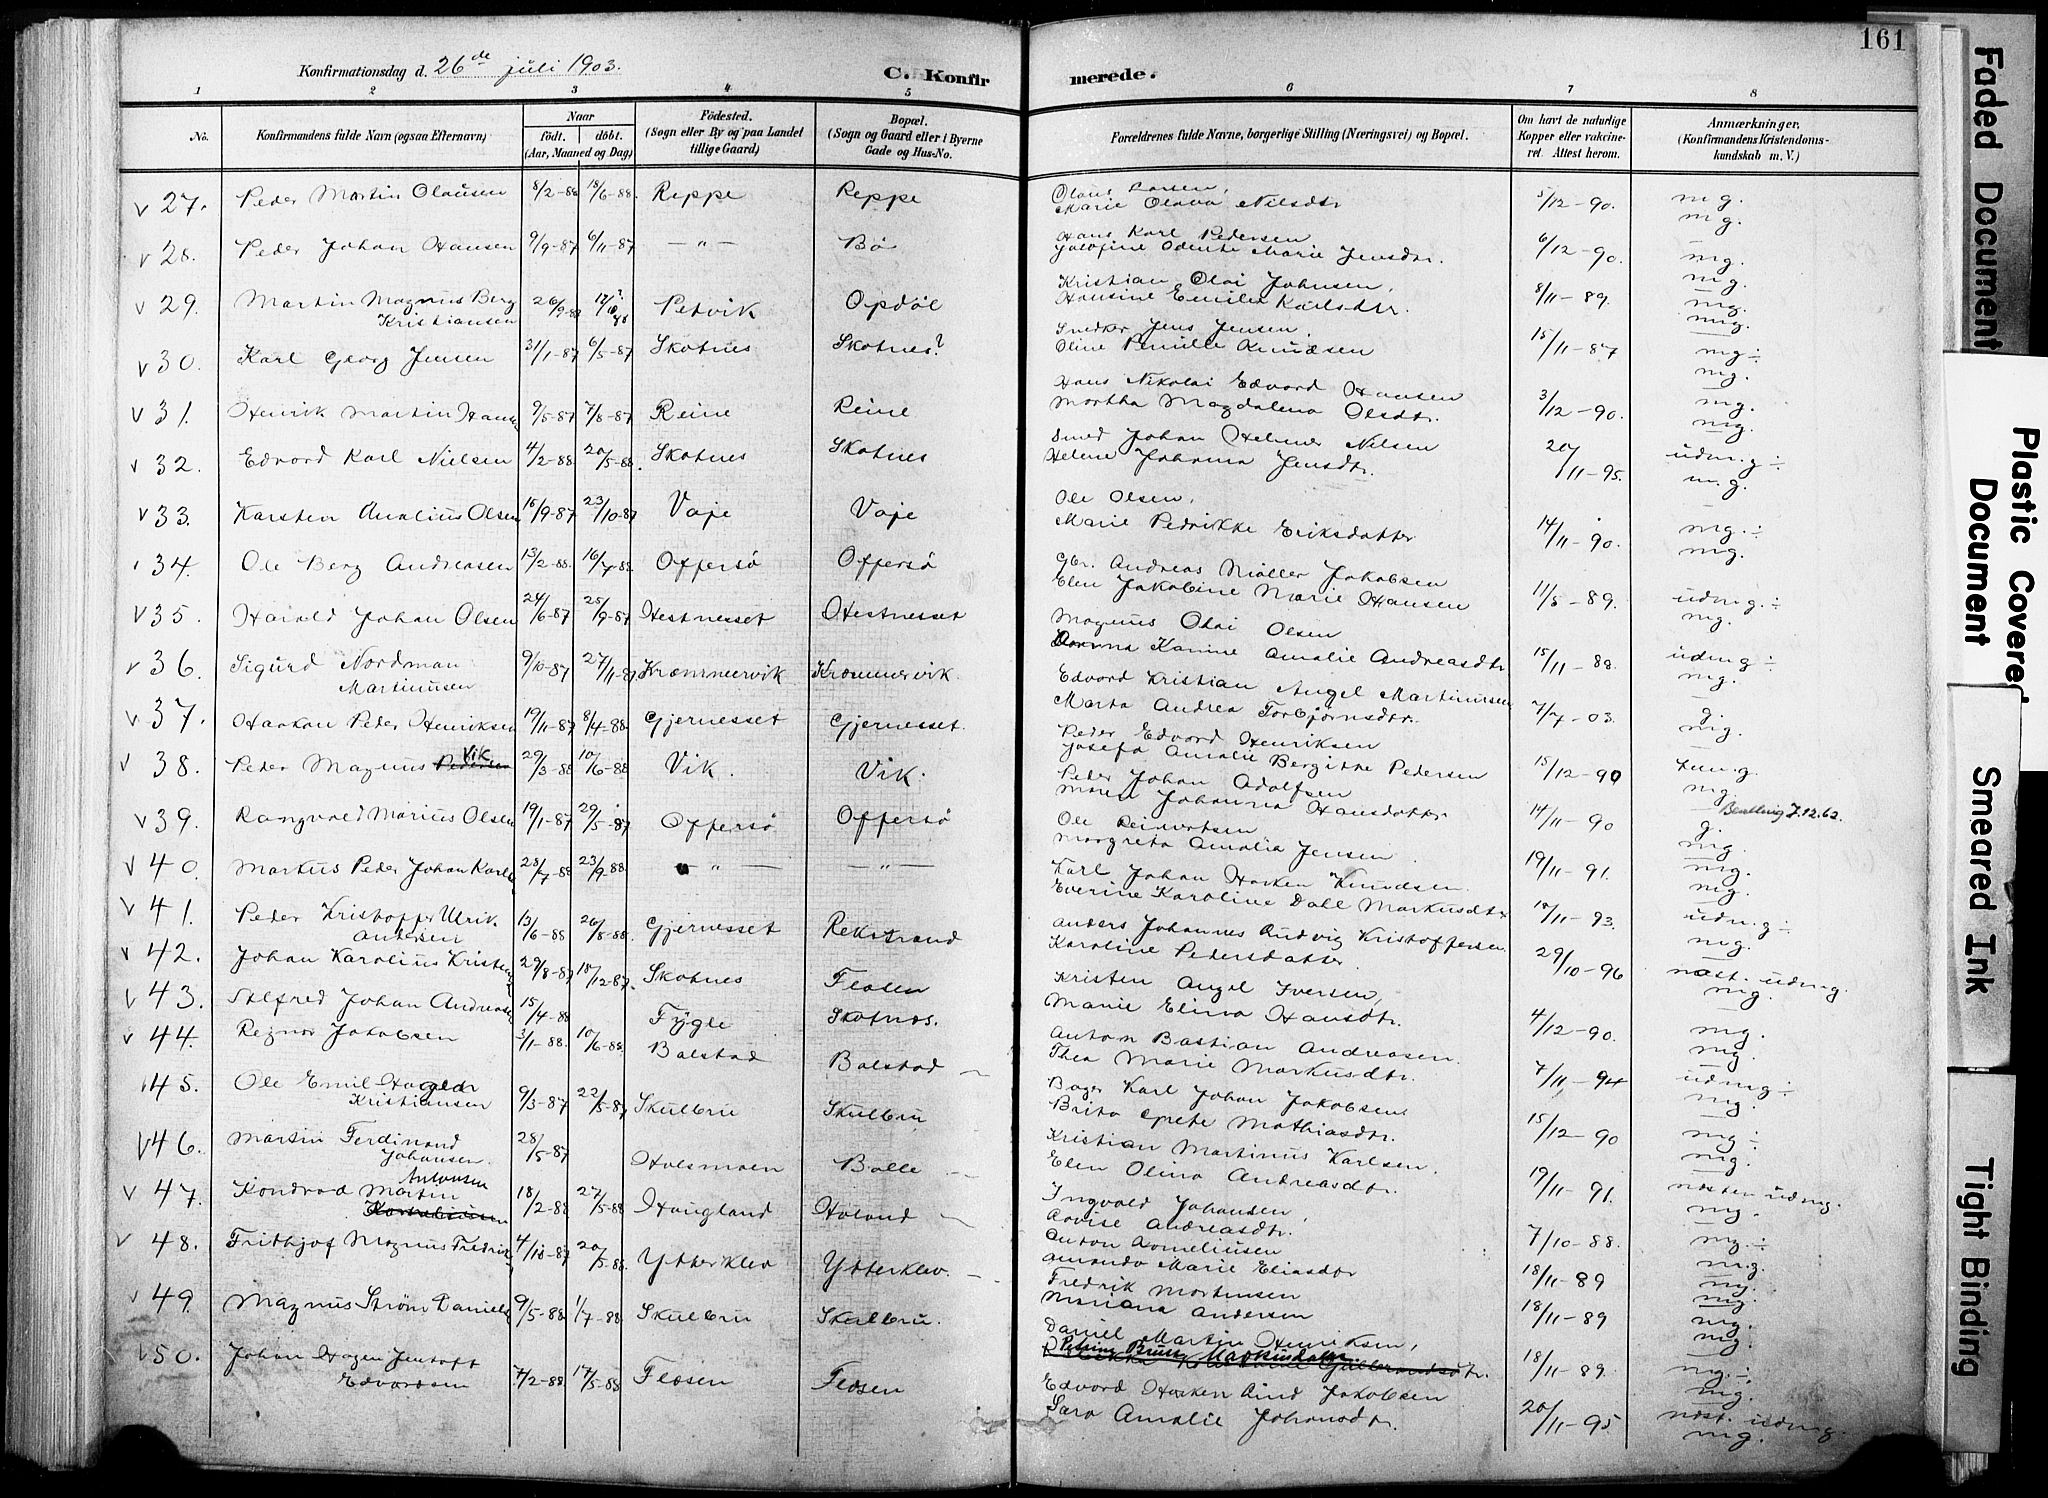 161
Konfirmationsdag d. 26de juli 1903.
C. Konfirmerede.
1 2 3 4 5 6 7 8
No.
Konfirmandens fulde Navn (ogsaa Efternavn)
Naar
født. døbt.
(Aar, Maaned og Dag)
Fødested.
(Sogn eller By og paa Landet
tillige Gaard)
Bopæl.
(Sogn og Gaard eller i Byerne
Gade og Hus-No.
Forældrenes fulde Navne, borgerlige Stilling (Næringsvei) og Bopæl.
Om havt de naturlige
Kopper eller vakcine-
ret. Attest herom.
Anmærkninger,
(Konfirmandens Kristendoms-
kundskab m. V.)
v 27. Peder Martin Olausen 8/2-88 18/6-88. Reppe Reppe Olaus Larsen, 5/12-90. mg.
Marie Olava Nilsdtr mg.
v 28. Peder Johan Hansen 9/9-87 6/11-87 —"— Bø Hans Karl Pedersen 6/12-90. mg.
Josefine Odente Marie Jensdtr. mg.
v 29. Martin Magnus Berg Kristiansen 26/9-88 Petvik Opdøl Kristian Olai Johnsen, 8/11-89. mg.
Hansine Emilie Karlsdtr. mg.
v 30. Karl Georg Jensen 31/1-87 6/5-87 Skotnes Skotnes? Snedker Jens Jensen, 15/11-87 mg÷
Oline Pernille Knudsen mg.
v 31. Henrik Martin Hansen 9/5-87 7/8-87 Reine Reine Hans Nikolai Edvard Hansen 3/12-90. mg.
Martha Magdalena Olsdtr. mg.
v 32. Edvard Karl Nielsen 4/2-88 20/5-88. Skotnes Skotnes Smed Johan Helmer Nilsen 20/11-95. udm.g÷
Helene Johanna Jensdtr. m.g.
v 33. Karsten Analius Olsen 15/9-87 23/10-87 Vaje Vaje Ole Olsen, 14/11-90. mg.÷
Marie Pedrikke Eriksdatter mg.
34. Ole Berg Andreasen 13/2-88. 16/7-88 Offersø Offersø Gbr. Andreas Møller Jakobsen 11/5-89. udmg.÷
Elen Jakobine Marie Hansen mg.
v 35. Harald Johan Olsen 24/6-87 25/9-87 Hestnesset Hestnesset Magnus Olai Olsen 15/11-88. udmg÷
Kanine Amalie Andreasdtr mg.
v 36. Sigurd Nordman Martinusen 9/10-87 27/11-87 Kræmmervik Kræmmervik. Edvard Kristian Angel Martinusen 7/7-03. g.
Marta Andrea Torbjørnsdtr. mg.
v 37. Haakon Peder Henriksen 19/11-87 8/4-88 Gjernesset Gjernesset. Peder Edvard Henriksen 15/12-90
Josefa Amalie Bergitte Pedersen mg
v 38. Peder Magnus Pedersen Vik 29/3-88 10/6-88 Vik. Vik. Peder Johan Adolfsen 14/11-90 g.
Maren Johanna Hansdatter mg
7.12.62.
v 39. Rangvald Marius Olsen 19/1-87 29/5-87 Offersø Offersø Ole Reinertsen 19/11-91. mg.
Margreta Amalia Jensen. mg.
v 40. Markus Peder Johan Karls 28/7-88 23/9-88. —"— —"— Karl Johan Haaken Knudsen. 18/11-93. udmg÷
Everine Karoline Dall Markusdtr mg.
v 41. Peder Kristoffer Ulrik. Andersen 13/6-88 26/8-88. Gjernesset Rekstrand Anders Johannes Ludvig Kristoffersen 29/10-96 næst. udmg.
Karoline Pedersdatter mg.
v 42. Johan Karolius Kristens 29/8-87 18/12-87. Skotnes Flosen Kristen Angel Iversen, 4/12-90. mg.
Marie Elina Hansdtr. mg.
v 43. Alfred Johan Andreasen 15/4-88 Fygle Skotnes. Anton Bastian Andreasen. 7/11-94 udmg÷
Thea Marie Markusdtr. mg.
v 44. Regnor Jakobsen 3/1-88. 10/6-88. Balstad Balstad Bager Karl Johan Jakobsen 15/12-90 mg÷
Brita Grete Mathiasdtr. mg.
45. Ole Emil Harald Kristiansen 9/3-87 22/5-87 Skulbru Skulbru Kristian Martinus Karlsen. 19/11-91. næsten udmg.
Elen Olina Andreasdtr. mg.
v 46. Martin Ferdinand Johansen. 28/5-87 Holsmoen Balle Ingvald Johansen, 7/10-88. mg.÷
Lovise Andreasdtr. mg
v 47. Kondrad Martin Antonsen 18/2-88 27/5-88 Haugland Holand Anton Korneliusen 18/11-89 mg
Amanda Marie Eliasdtr mg.
v 48. Frithjof Magnus Fredriks 4/10-87 20/5-88. Ytterklev Ytterklev. Fredrik Mortensen 18/11-89 mg.
Mariana Andersen mg.
v 49. Magnus Strøm Daniels 9/5-88 1/7-88 Skulbru Skulbru. Daniel Martin Henriksen, 18/11-89. mg.÷
Petrine Markusdatter mg.
v 50. Johan Hagen Jentoft Edvardsen 7/2-88 17/5-88 Flosen Flosen Edvard Haaken Lind Jakobsen 20/11-95 næst. udmg.
Sara Amalie Johansdtr. mg.
Faded Document
Plastic Covered
Document
Smeared Ink
Tight Binding